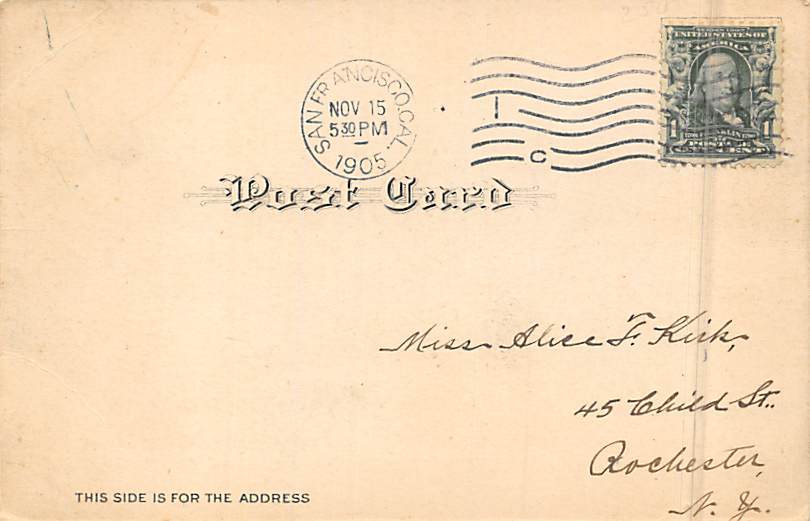 SAN FRANCISCO, CAL.
NOV 15
5 30 PM
1905
1
C
SERIES 1902
UNITED STATES OF
AMERICA
1 FRANKLIN 1
POSTAGE
Post Card
Miss Alice F. Kirk,
45 Child St.
Rochester,
N. Y.
THIS SIDE IS FOR THE ADDRESS